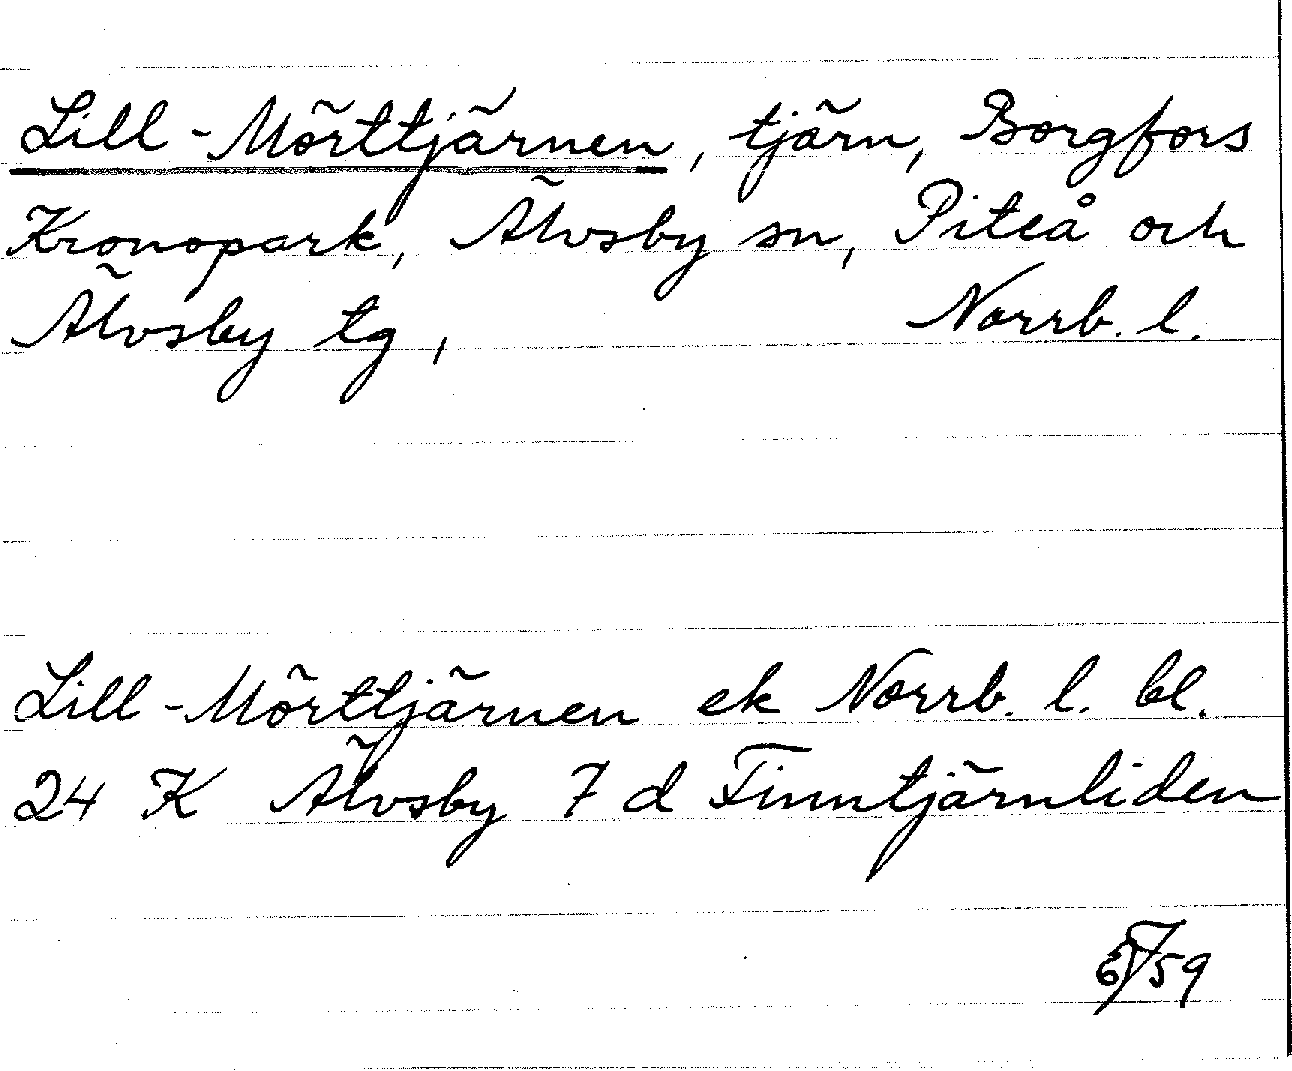 Lill-Mörttjärnen, tjärn, Borgfors
Kronopark, Älvsby sn, Piteå och
Älvsby tg, Norrb. l.
Lill-Mörttjärnen ek Norrb. l. bl.
24 K Älvsby 7 d Finntjärnliden